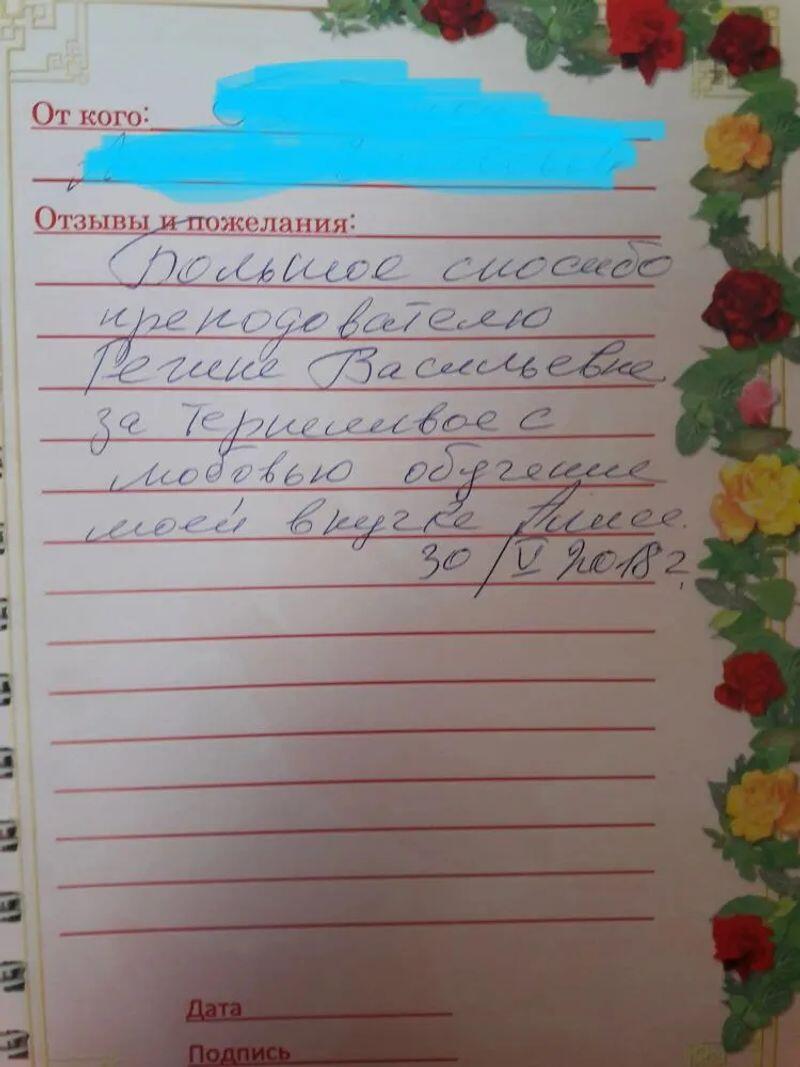 От кого:
Отзывы и пожелания:
Большое спасибо
преподователю
Регине Васильевне
за терпеливое с
любовью обучение
моей внучке Алисе.
30/V 2018г.
Дата
Подпись